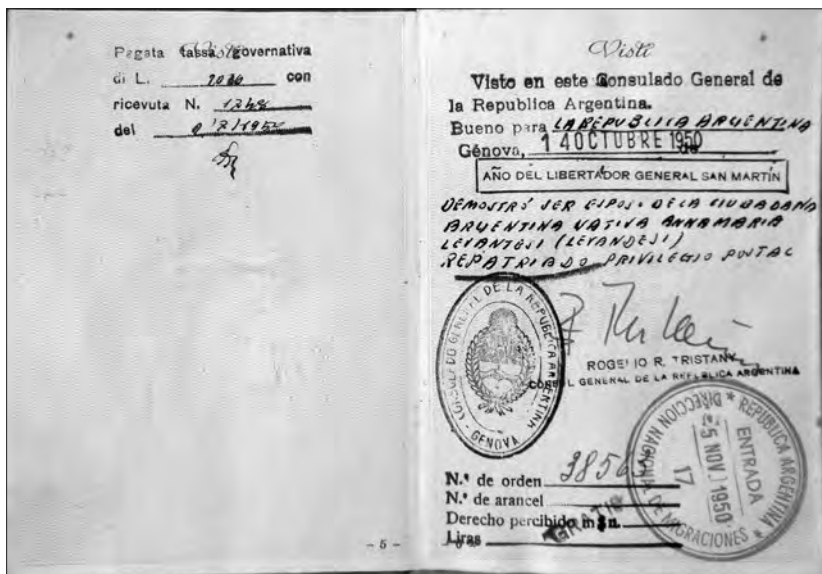 Visti
Pagata tassa governativa
di L. con
ricevuta N.
del
- 5 -
Visti
Visto en este Consulado General de
la Republica Argentina.
Bueno para LA REPUBLICA ARGENTINA
Génova, 14 OCTUBRE 1950
AÑO DEL LIBERTADOR GENERAL SAN MARTÍN
DEMOSTRÓ SER ESPOSO DE LA CIUDADANA
ARGENTINA NATIVA ANNAMARIA
LEVANTESI (LEVANDESI)
REPATRIADO PRIVILEGIO POSTAL
CONSULADO GENERAL DE LA REPUBLICA ARGENTINA
- GENOVA -
ROGELIO R. TRISTANY
CONSUL GENERAL DE LA REPUBLICA ARGENTINA
REPUBLICA ARGENTINA
DIRECCION NACIONAL DE MIGRACIONES
ENTRADA
5 NOV. 1950
17
N.º de orden
N.º de arancel
Derecho percibido m$n.
GRATIS
Liras